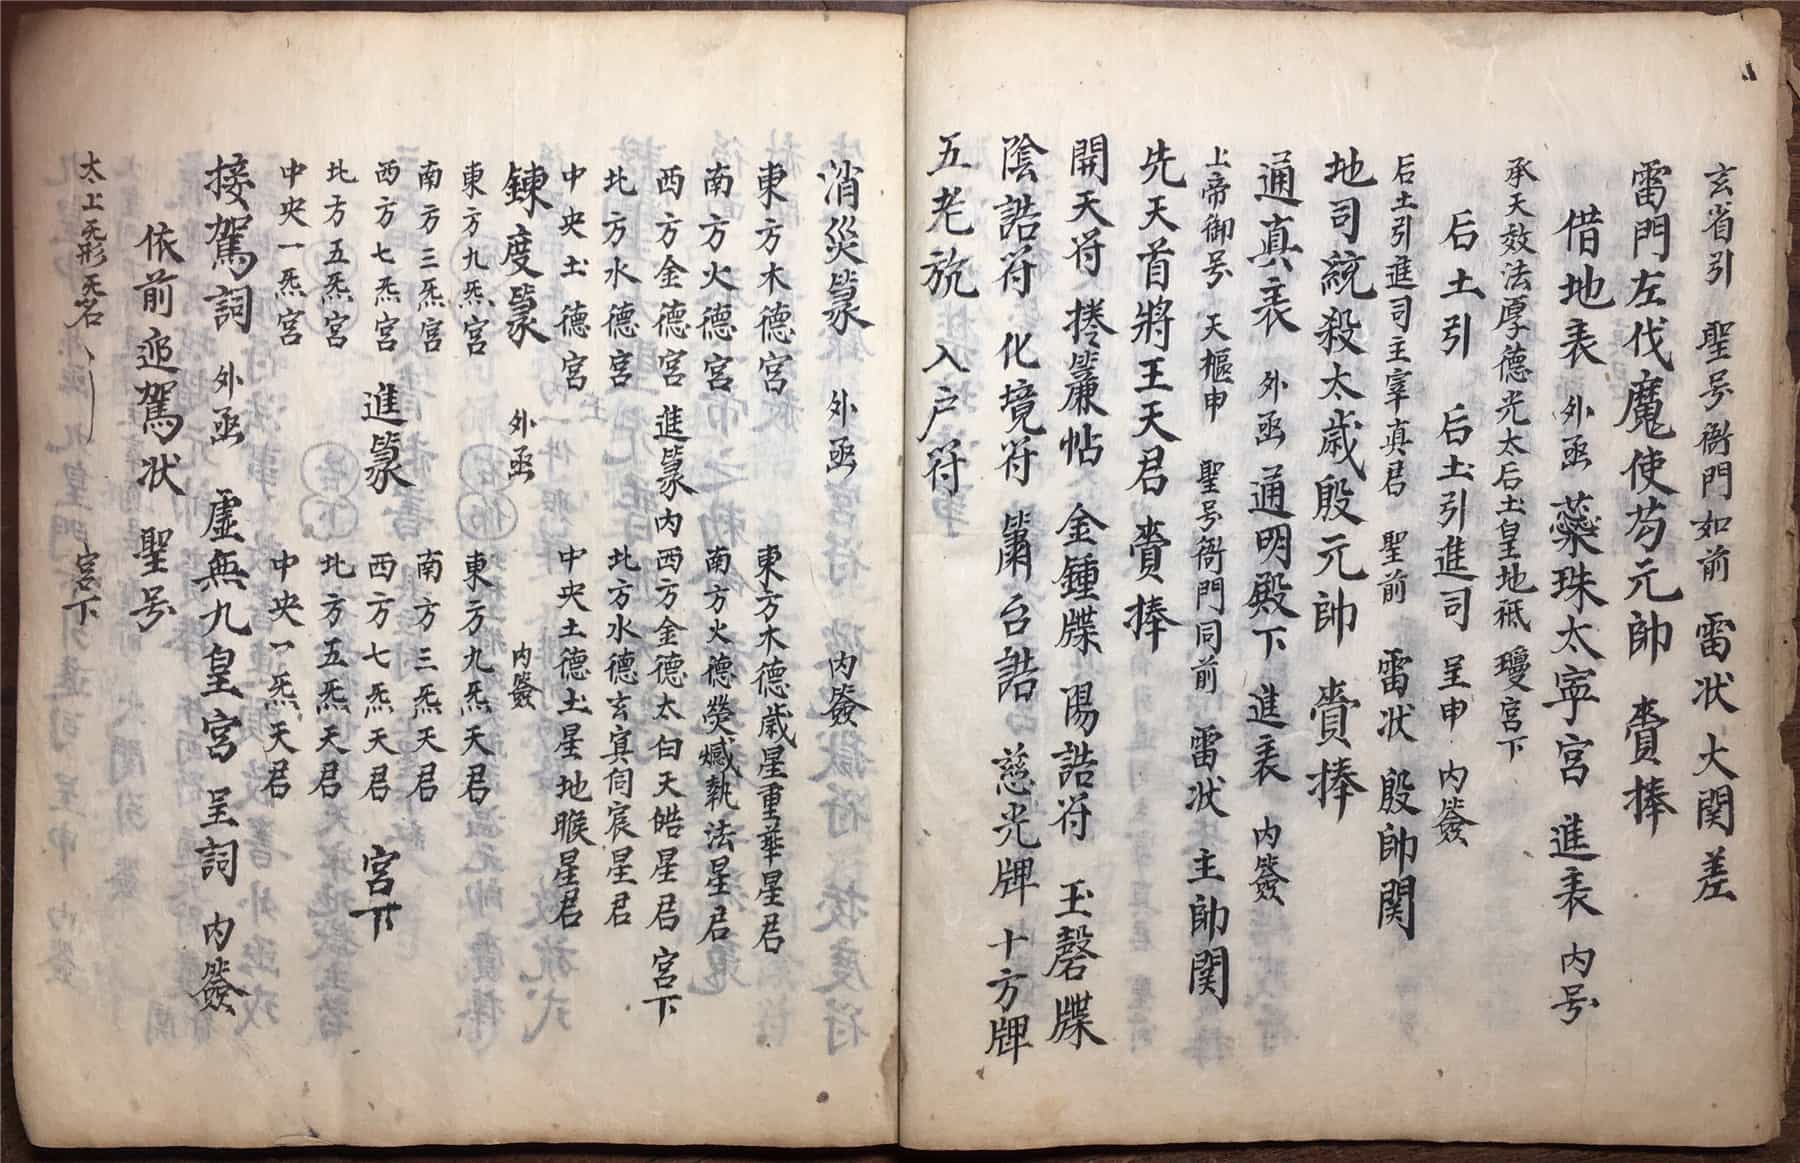 玄省引 聖号衙門如前 雷状大関差
雷門左伐魔使芶元帥 賫捧
借地表 外函 蘂珠太寜宮 進表 内号
承天效法厚德光太后土皇地祗 瓊宮下
后土引 后土引進司 呈申 内簽
后土引進司主宰真君 聖前 雷状 殷帥関
地司統殺太歲殷元帥 賫捧
通真表 外函 通明殿下 進表 内簽
上帝御号 天樞申 聖号衙門同前 雷状 主帥関
先天首將王天君 賫捧
開天符 捲簾帖 金鍾牒 陽誥符 玉磬牒
陰誥符 化境符 簫台誥 慈光牌 十方牌
五老旐 入户符
消災篆 外函 内簽
東方木德宮 東方木德歲星重華星君
南方火德宮 南方火德熒惑執法星君
西方金德宮 進篆内 西方金德太白天皓星君 宮下
北方水德宮 北方水德玄寘伺宸星君
中央土德宮 中央土德土星地睺星君
錬度篆 外函 内簽
東方九炁宮 東方九炁天君
南方三炁宮 南方三炁天君
西方七炁宮 進篆 西方七炁天君 宮下
北方五炁宮 北方五炁天君
中央一炁宮 中央一炁天君
接駕詞 外函 虛無九皇宮 呈詞 内簽
依前迎駕状 聖号
太上旡形旡名 宮下